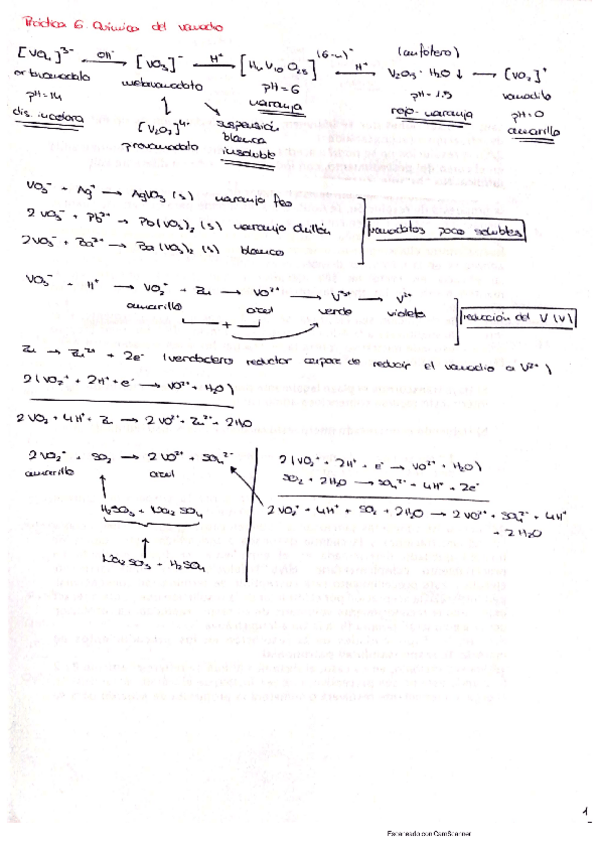 Práctica 6. Química del vanadio
[VO₄]³⁻ —OH⁻→ [VO₃]⁻ —H⁺→ [HₙV₁₀O₂₈]⁽⁶⁻ⁿ⁾⁻ —H⁺→ V₂O₅·H₂O ↓ → [VO₂]⁺
(anfótero)
ortovanadato metavanadato pH=6 pH=1.5 vanadilo
pH=14 naranja rojo-naranja pH=0
dis. incolora amarillo
[V₂O₇]⁴⁻ suspensión
pirovanadato blanca
insoluble
VO₃⁻ + Ag⁺ → AgVO₃ (s) naranja
2VO₃⁻ + Pb²⁺ → Pb(VO₃)₂ (s) naranja chillón
2VO₃⁻ + Ba²⁺ → Ba(VO₃)₂ (s) blanco
vanadatos poco solubles
VO₃⁻ + H⁺ → VO₂⁺ + Zn → VO²⁺ → V³⁺ → V²⁺
amarillo azul verde violeta
+
reducción del V(V)
Zn → Zn²⁺ + 2e⁻ (verdadero reductor capaz de reducir el vanadio a V²⁺)
2(VO₂⁺ + 2H⁺ + e⁻ → VO²⁺ + H₂O)
2VO₂ + 4H⁺ + Zn → 2VO²⁺ + Zn²⁺ + 2H₂O
2VO₂⁺ + SO₂ → 2VO²⁺ + SO₄²⁻
amarillo azul
H₂SO₃ + Na₂SO₄
Na₂SO₃ + H₂SO₄
2(VO₂⁺ + 2H⁺ + e⁻ → VO²⁺ + H₂O)
SO₂ + 2H₂O → SO₄²⁻ + 4H⁺ + 2e⁻
2VO₂⁺ + 4H⁺ + SO₂ + 2H₂O → 2VO²⁺ + SO₄²⁻ + 4H⁺
+ 2H₂O
1
Escaneado con CamScanner